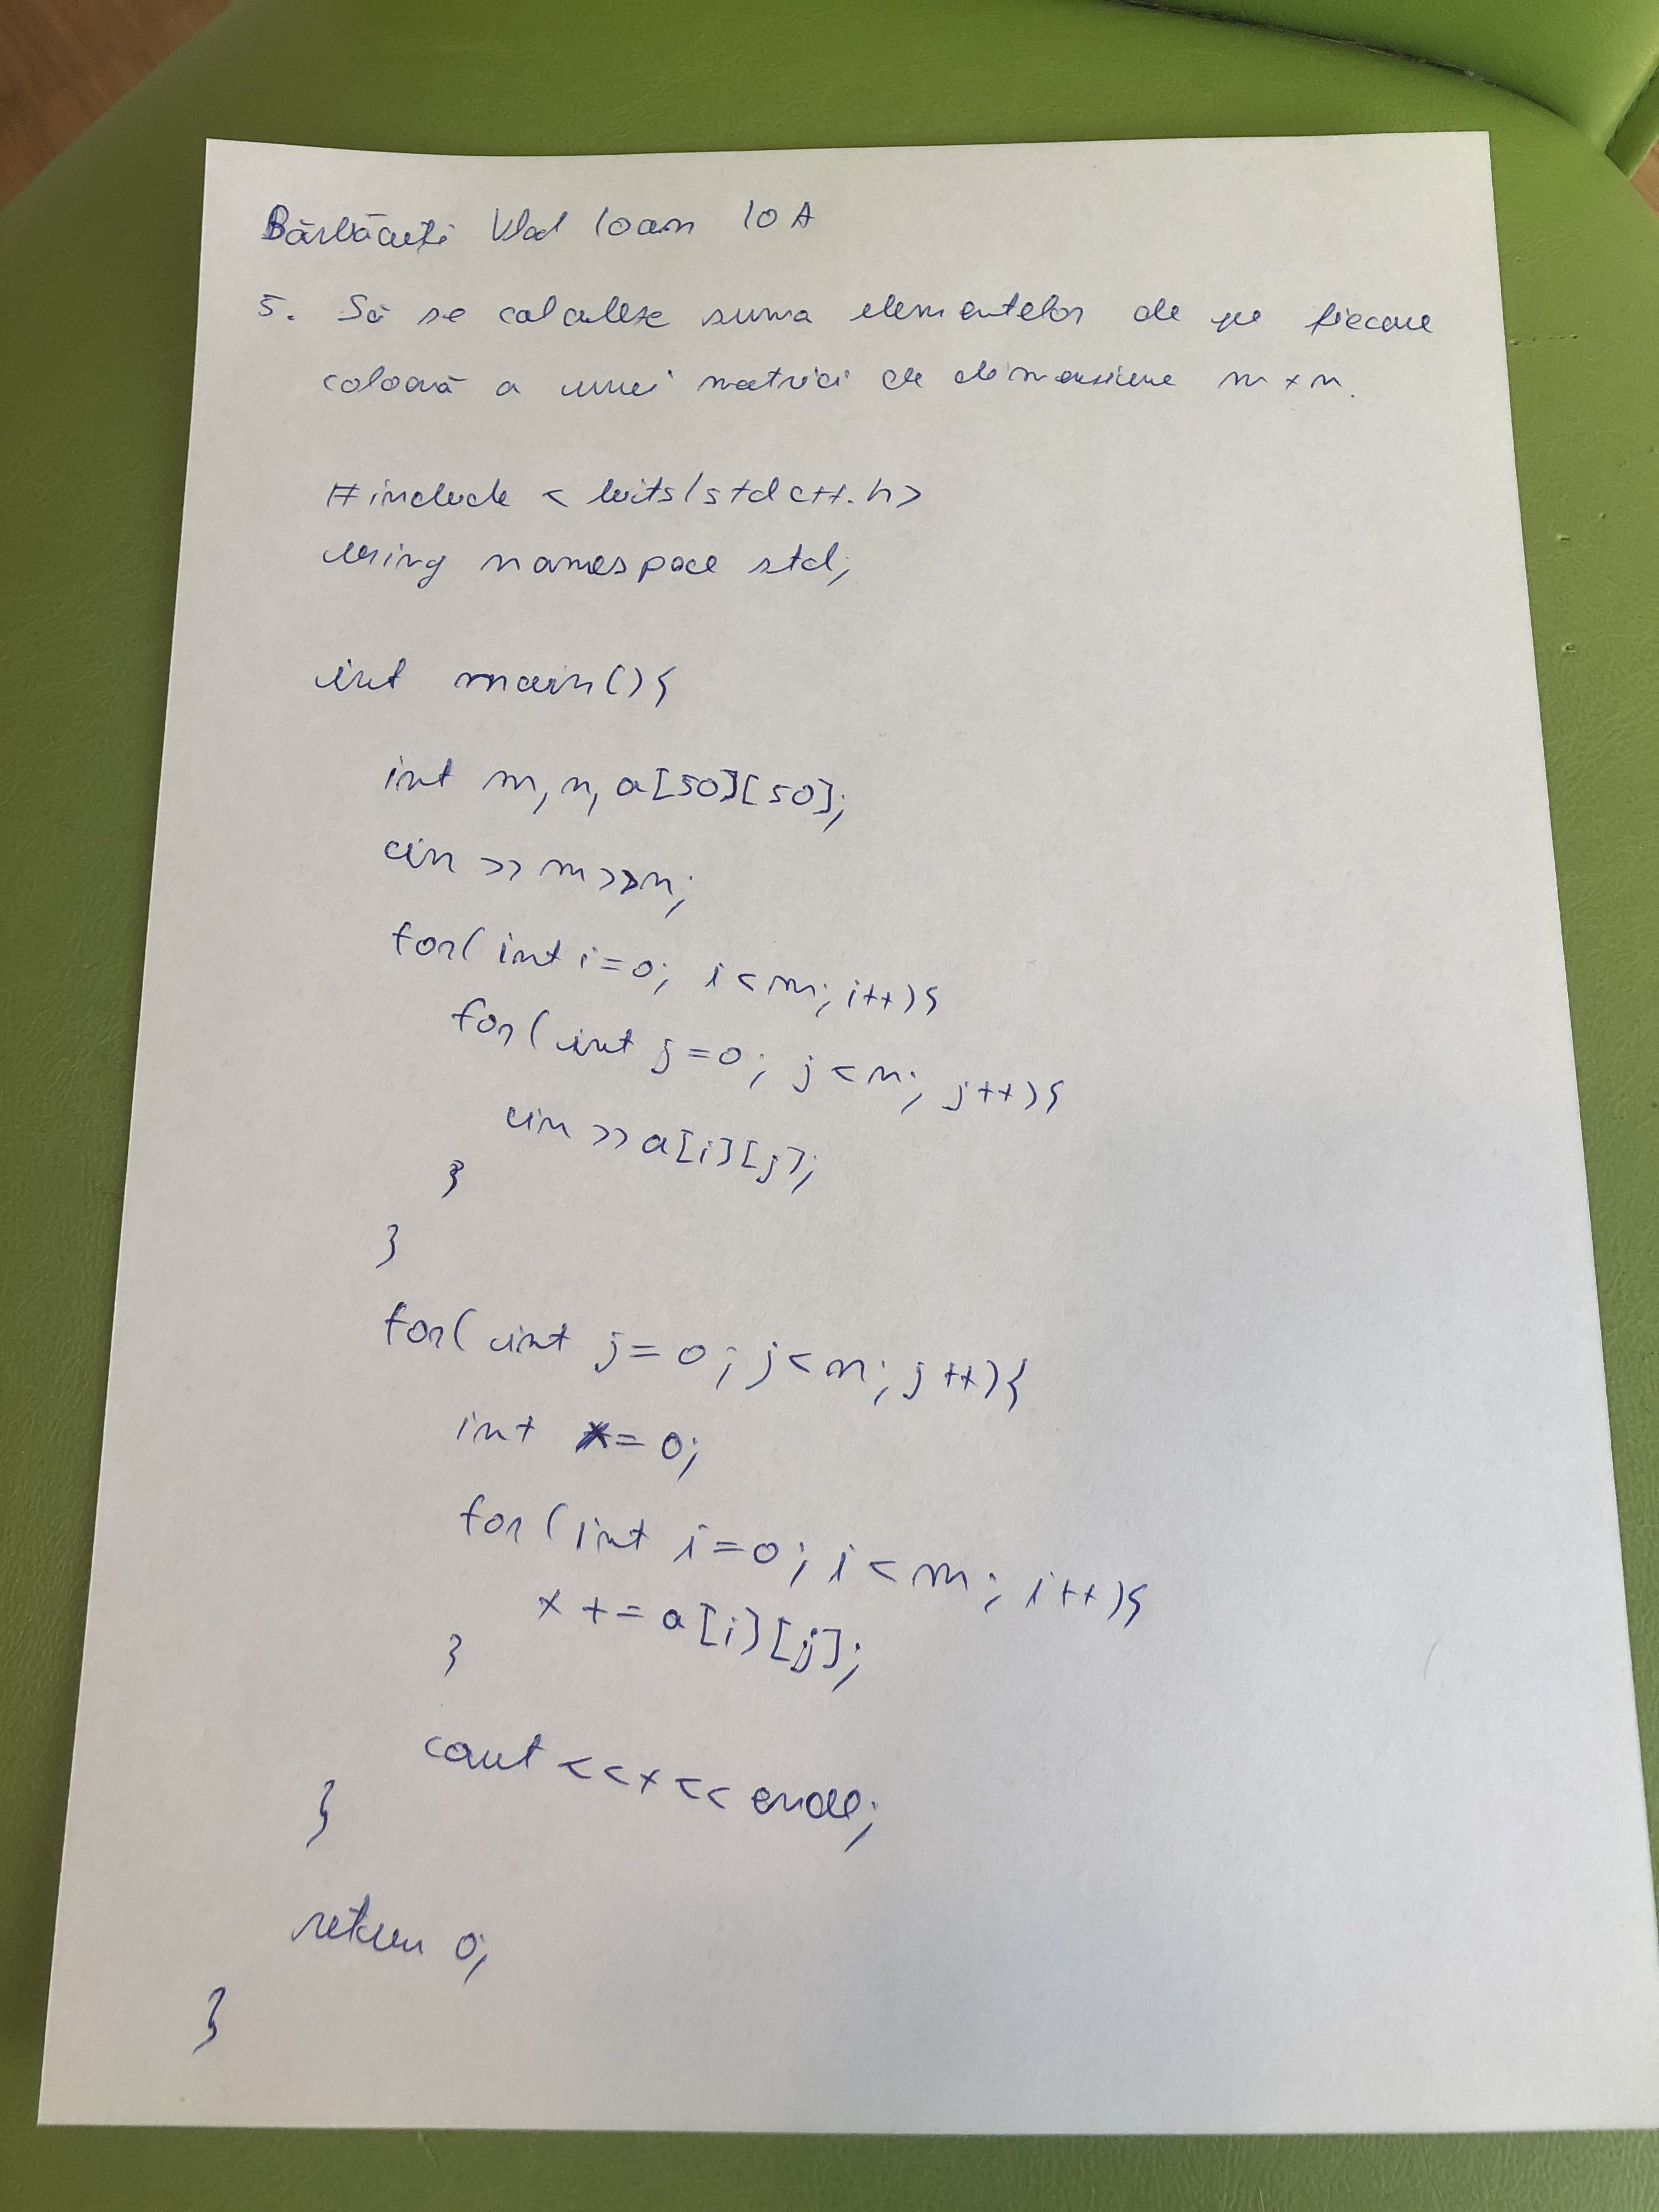 Bărbăcuți Vlad Ioan 10 A
5. Să se calculeze suma elementelor de pe fiecare
coloană a unei matrici de dimensiune m x n.
#include <bits/stdc++.h>
using namespace std;
int main(){
int m, n, a[50][50];
cin >> m >> n;
for( int i=0; i<m; i++){
for( int j=0; j<n; j++){
cin >> a[i][j];
}
}
for( int j=0; j<n; j++){
int x=0;
for( int i=0; i<m; i++){
x += a[i][j];
}
cout <<x<< endl;
}
return 0;
}